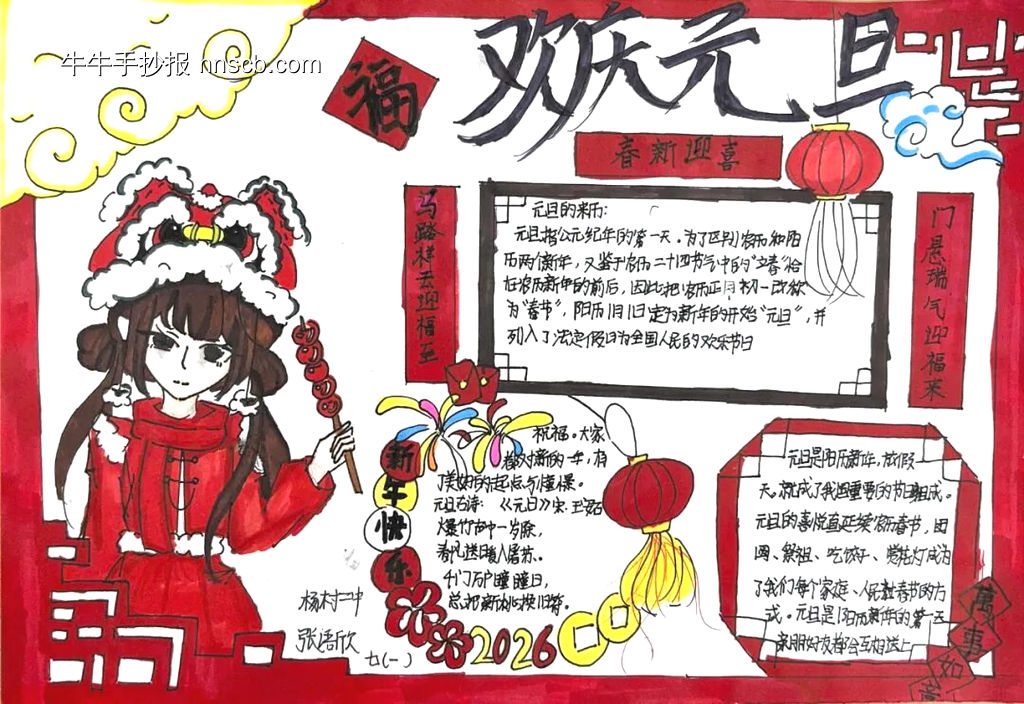 牛牛手抄报 nnscb.com
福
欢庆元旦
春新迎喜
马踏祥云迎福至
门悬瑞气迎福来
元旦的来历:
元旦指公元纪年的第一天。为了区别农历和阳
历两个新年,又鉴于农历二十四节气中的“立春”恰
在农历新年的前后,因此把农历正月初一改称
为“春节”,阳历1月1日定为新年的开始“元旦”,并
列入了法定假日为全国人民的欢乐节日
新年快乐
祝福。大家
都对新的一年,有
美好的起点与憧憬。
元旦古诗:《元日》宋·王安石
爆竹声中一岁除,
春风送暖入屠苏。
千门万户曈曈日,
总把新桃换旧符。
2026
元旦是阳历新年,放假一
天,就成了我国重要的节日组成。
元旦的喜悦直延续农历春节,团
圆、祭祖、吃饺子、赏花灯成为
了我们每个家庭、人民驻春节的方
式。元旦是阳历新年的第一天
亲朋好友都会互相送上
萬事如意
杨村二中
张语欣
七(一)